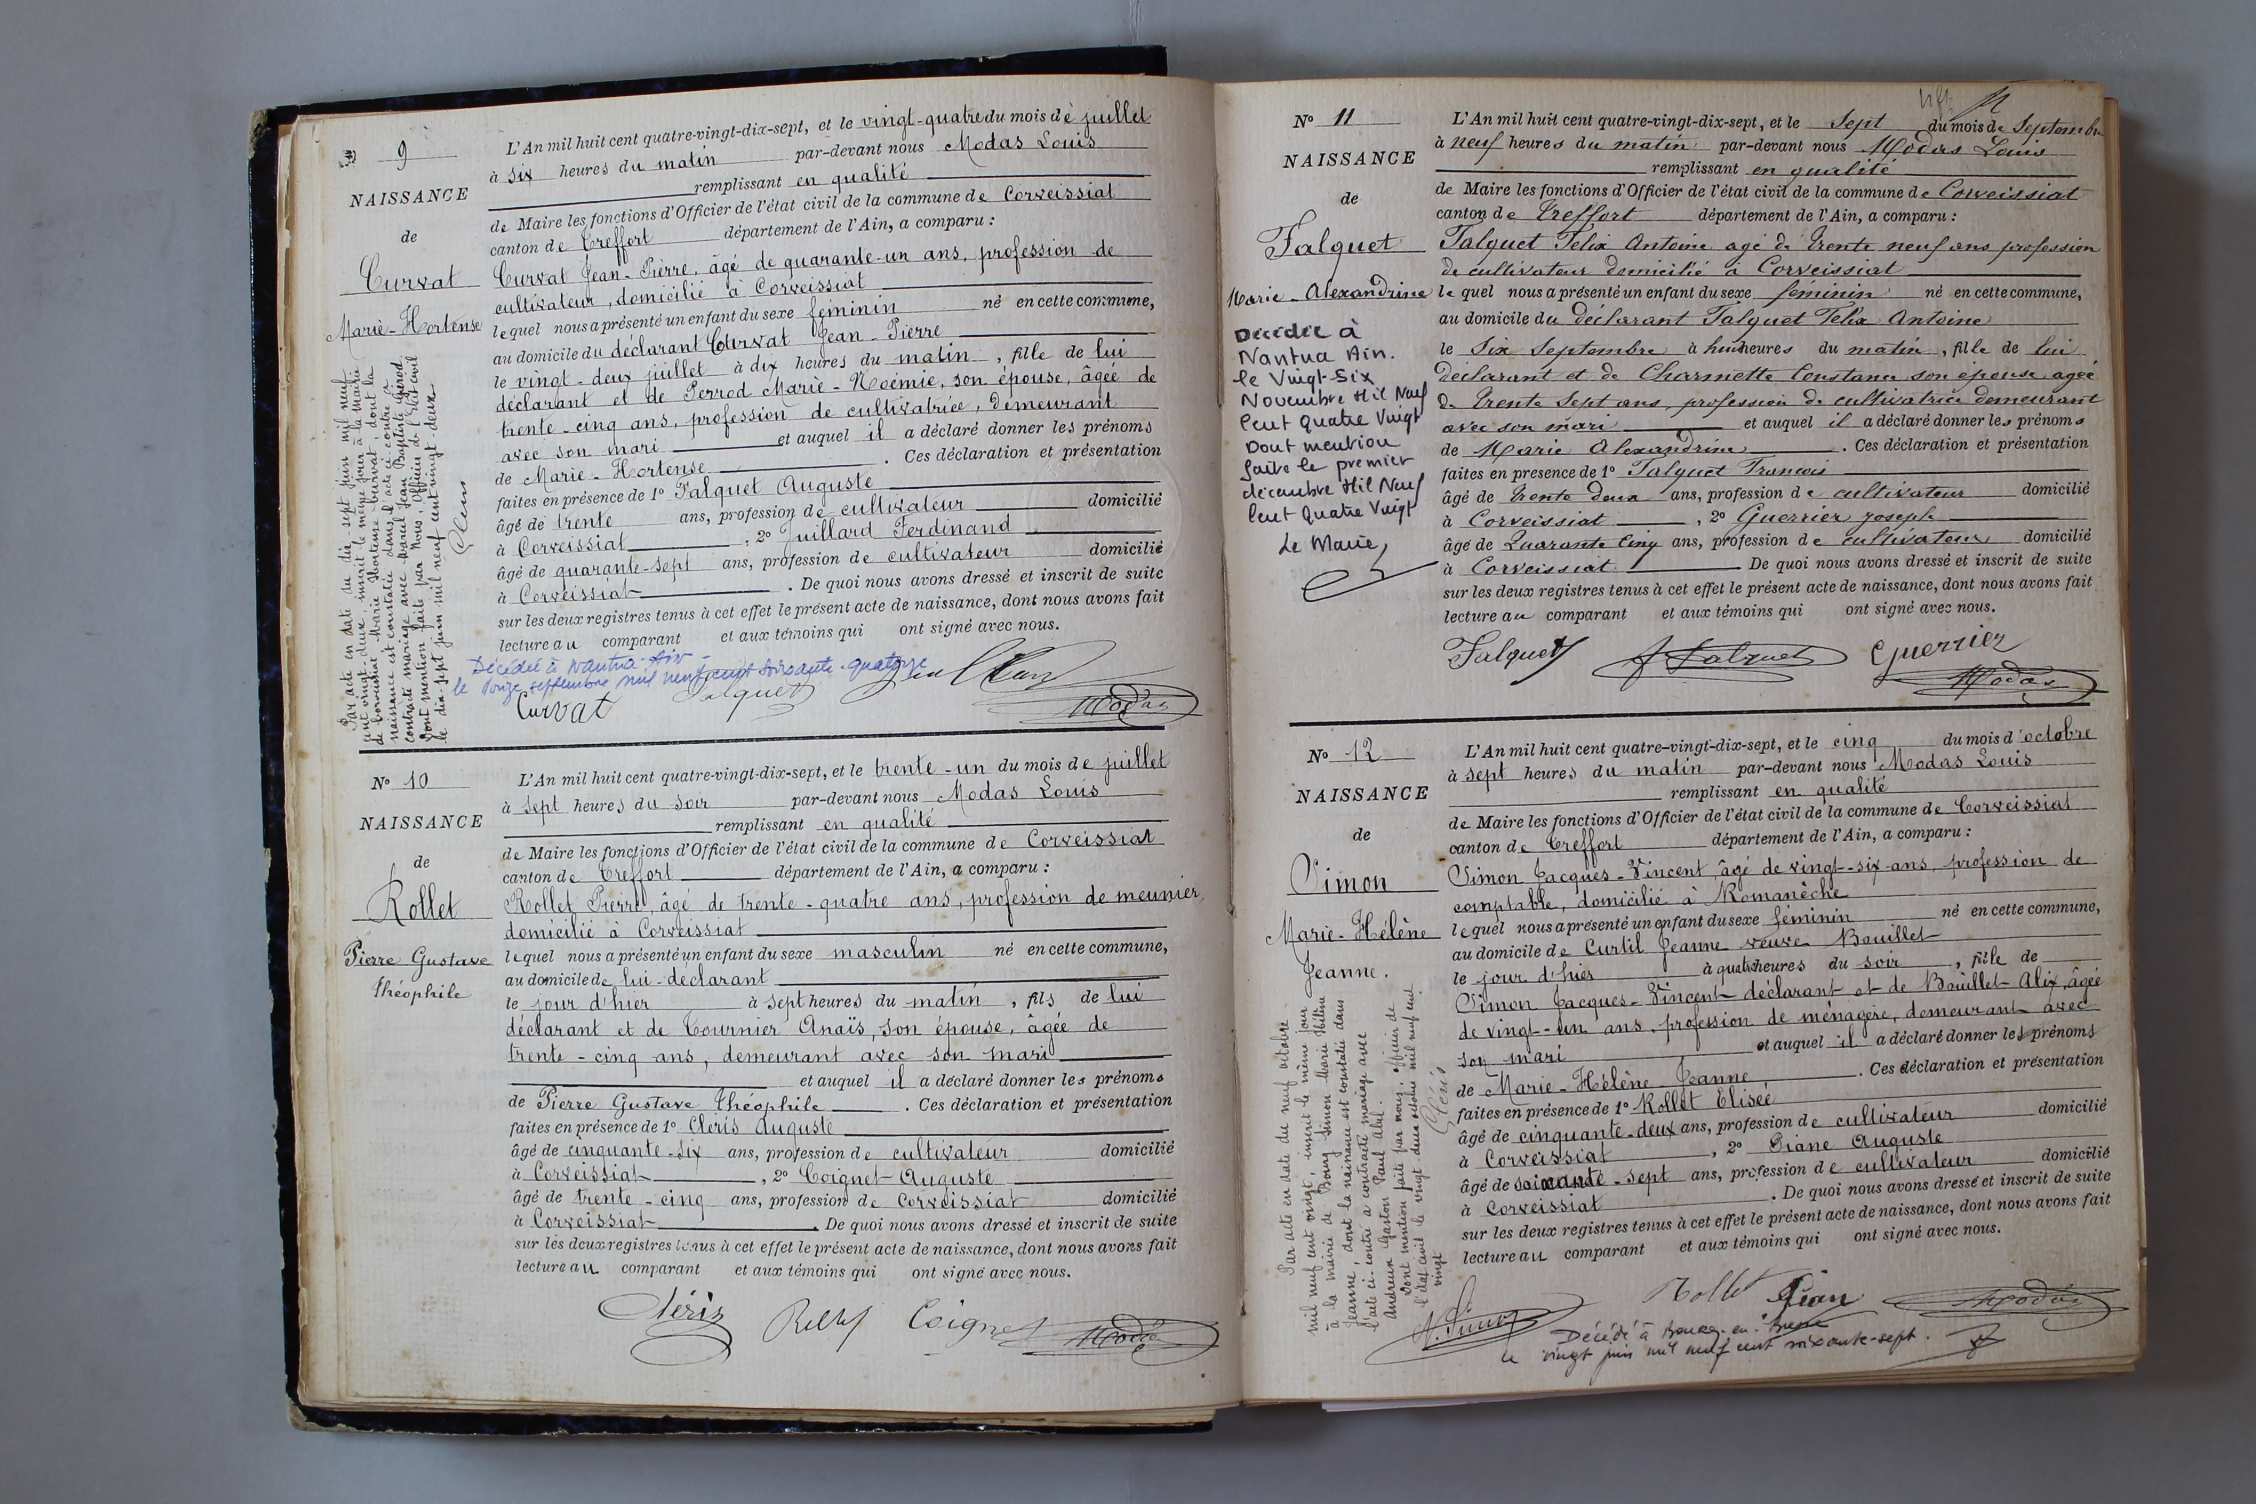 9
NAISSANCE
de
Curvat
Marie-Hortense
Par acte en date du dix-sept juin mil neuf
cent vingt-deux, inscrit le même jour à la mairie
de Corveissiat Marie Hortense Curvat, dont la
naissance est constatée dans l'acte ci-contre a
contracté mariage avec Marcel Jean Baptiste
Dont mention faite par Nous, Officier de l'Etat civil
le dix-sept juin mil neuf cent vingt-deux
L'An mil huit cent quatre-vingt-dix-sept, et le vingt-quatre du mois de juillet
à six heures du matin par-devant nous Modas Louis
remplissant en qualité
de Maire les fonctions d'Officier de l'état civil de la commune de Corveissiat
canton de Treffort département de l'Ain, a comparu :
Curvat Jean-Pierre, âgé de quarante-un ans, profession de
cultivateur, domicilié à Corveissiat
lequel nous a présenté un enfant du sexe féminin né en cette commune,
au domicile du déclarant Curvat Jean-Pierre
le vingt-deux juillet à dix heures du matin, fille de lui
déclarant et de Perrod Marie-Noémie, son épouse, âgée de
trente-cinq ans, profession de cultivatrice, demeurant
avec son mari et auquel il a déclaré donner les prénoms
de Marie-Hortense. Ces déclaration et présentation
faites en présence de 1º Falquet Auguste
âgé de trente ans, profession de cultivateur domicilié
à Corveissiat, 2º Juillard Ferdinand
âgé de quarante-sept ans, profession de cultivateur domicilié
à Corveissiat. De quoi nous avons dressé et inscrit de suite
sur les deux registres tenus à cet effet le présent acte de naissance, dont nous avons fait
lecture au comparant et aux témoins qui ont signé avec nous.
Décédée à Nantua-Ain-
le douze septembre mil neuf cent soixante-quatorze
Curvat Falquet Modas
Nº 10
NAISSANCE
de
Rollet
Pierre Gustave
Théophile
L'An mil huit cent quatre-vingt-dix-sept, et le trente-un du mois de juillet
à sept heures du soir par-devant nous Modas Louis
remplissant en qualité
de Maire les fonctions d'Officier de l'état civil de la commune de Corveissiat
canton de Treffort département de l'Ain, a comparu :
Rollet Pierre âgé de trente-quatre ans, profession de meunier,
domicilié à Corveissiat
lequel nous a présenté un enfant du sexe masculin né en cette commune,
au domicile de lui-déclarant
le jour d'hier à sept heures du matin, fils de lui
déclarant et de Tournier Anaïs, son épouse, âgée de
trente-cinq ans, demeurant avec son mari
et auquel il a déclaré donner les prénoms
de Pierre Gustave Théophile. Ces déclaration et présentation
faites en présence de 1º Cléris Auguste
âgé de cinquante-six ans, profession de cultivateur domicilié
à Corveissiat, 2º Coignet Auguste
âgé de trente-cinq ans, profession de Corveissiat domicilié
à Corveissiat. De quoi nous avons dressé et inscrit de suite
sur les deux registres tenus à cet effet le présent acte de naissance, dont nous avons fait
lecture au comparant et aux témoins qui ont signé avec nous.
Cléris Rollet Coignet Modas
Nº 11
NAISSANCE
de
Falquet
Marie-Alexandrine
Décédée à
Nantua Ain.
le Vingt-Six
Novembre Mil Neuf
Cent Quatre Vingt
Dont mention
faite le premier
décembre Mil Neuf
Cent Quatre Vingt
Le Maire,
L'An mil huit cent quatre-vingt-dix-sept, et le Sept du mois de Septembre
à neuf heures du matin par-devant nous Modas Louis
remplissant en qualité
de Maire les fonctions d'Officier de l'état civil de la commune de Corveissiat
canton de Treffort département de l'Ain, a comparu :
Falquet Félix Antoine agé de trente neuf ans profession
de cultivateur domicilié à Corveissiat
le quel nous a présenté un enfant du sexe féminin né en cette commune,
au domicile du déclarant Falquet Félix Antoine
le Six Septembre à huit heures du matin, fille de lui
déclarant et de Charmette Constance son épouse agée
de trente sept ans, profession de cultivatrice demeurant
avec son mari et auquel il a déclaré donner les prénoms
de Marie Alexandrine. Ces déclaration et présentation
faites en présence de 1º Falquet François
âgé de trente deux ans, profession de cultivateur domicilié
à Corveissiat, 2º Guerrier joseph
âgé de Quarante Cinq ans, profession de cultivateur domicilié
à Corveissiat De quoi nous avons dressé et inscrit de suite
sur les deux registres tenus à cet effet le présent acte de naissance, dont nous avons fait
lecture au comparant et aux témoins qui ont signé avec nous.
Falquet f Falquet Guerrier
Modas
Nº 12
NAISSANCE
de
Simon
Marie-Hélène
Jeanne.
Par acte en date du neuf octobre
mil neuf cent vingt, inscrit le même jour
à la mairie de Bourg Simon Marie Hélène
Jeanne, dont la naissance est constatée dans
l'acte ci-contre a contracté mariage avec
Andreux Gaston Paul Abel.
Dont mention faite par nous, officier de
l'état civil le vingt deux octobre mil neuf cent
vingt
Cléris
L'An mil huit cent quatre-vingt-dix-sept, et le cinq du mois d'octobre
à sept heures du matin par-devant nous Modas Louis
remplissant en qualité
de Maire les fonctions d'Officier de l'état civil de la commune de Corveissiat
canton de Treffort département de l'Ain, a comparu :
Simon Jacques-Vincent, âgé de vingt-six ans, profession de
comptable, domicilié à Romanèche
lequel nous a présenté un enfant du sexe féminin né en cette commune,
au domicile de Curtil Jeanne veuve Bouillet
le jour d'hier à quatre heures du soir, fille de
Simon Jacques-Vincent déclarant et de Bouillet Alix, âgée
de vingt-un ans, profession de ménagère, demeurant avec
son mari et auquel il a déclaré donner les prénoms
de Marie-Hélène-Jeanne. Ces déclaration et présentation
faites en présence de 1º Rollet Elisée
âgé de cinquante-deux ans, profession de cultivateur domicilié
à Corveissiat, 2º Piane Auguste
âgé de soixante-sept ans, profession de cultivateur domicilié
à Corveissiat. De quoi nous avons dressé et inscrit de suite
sur les deux registres tenus à cet effet le présent acte de naissance, dont nous avons fait
lecture au comparant et aux témoins qui ont signé avec nous.
Rollet Pian Modas
Décédé à Bourg-en-Bresse
le vingt juin mil neuf cent soixante-sept.